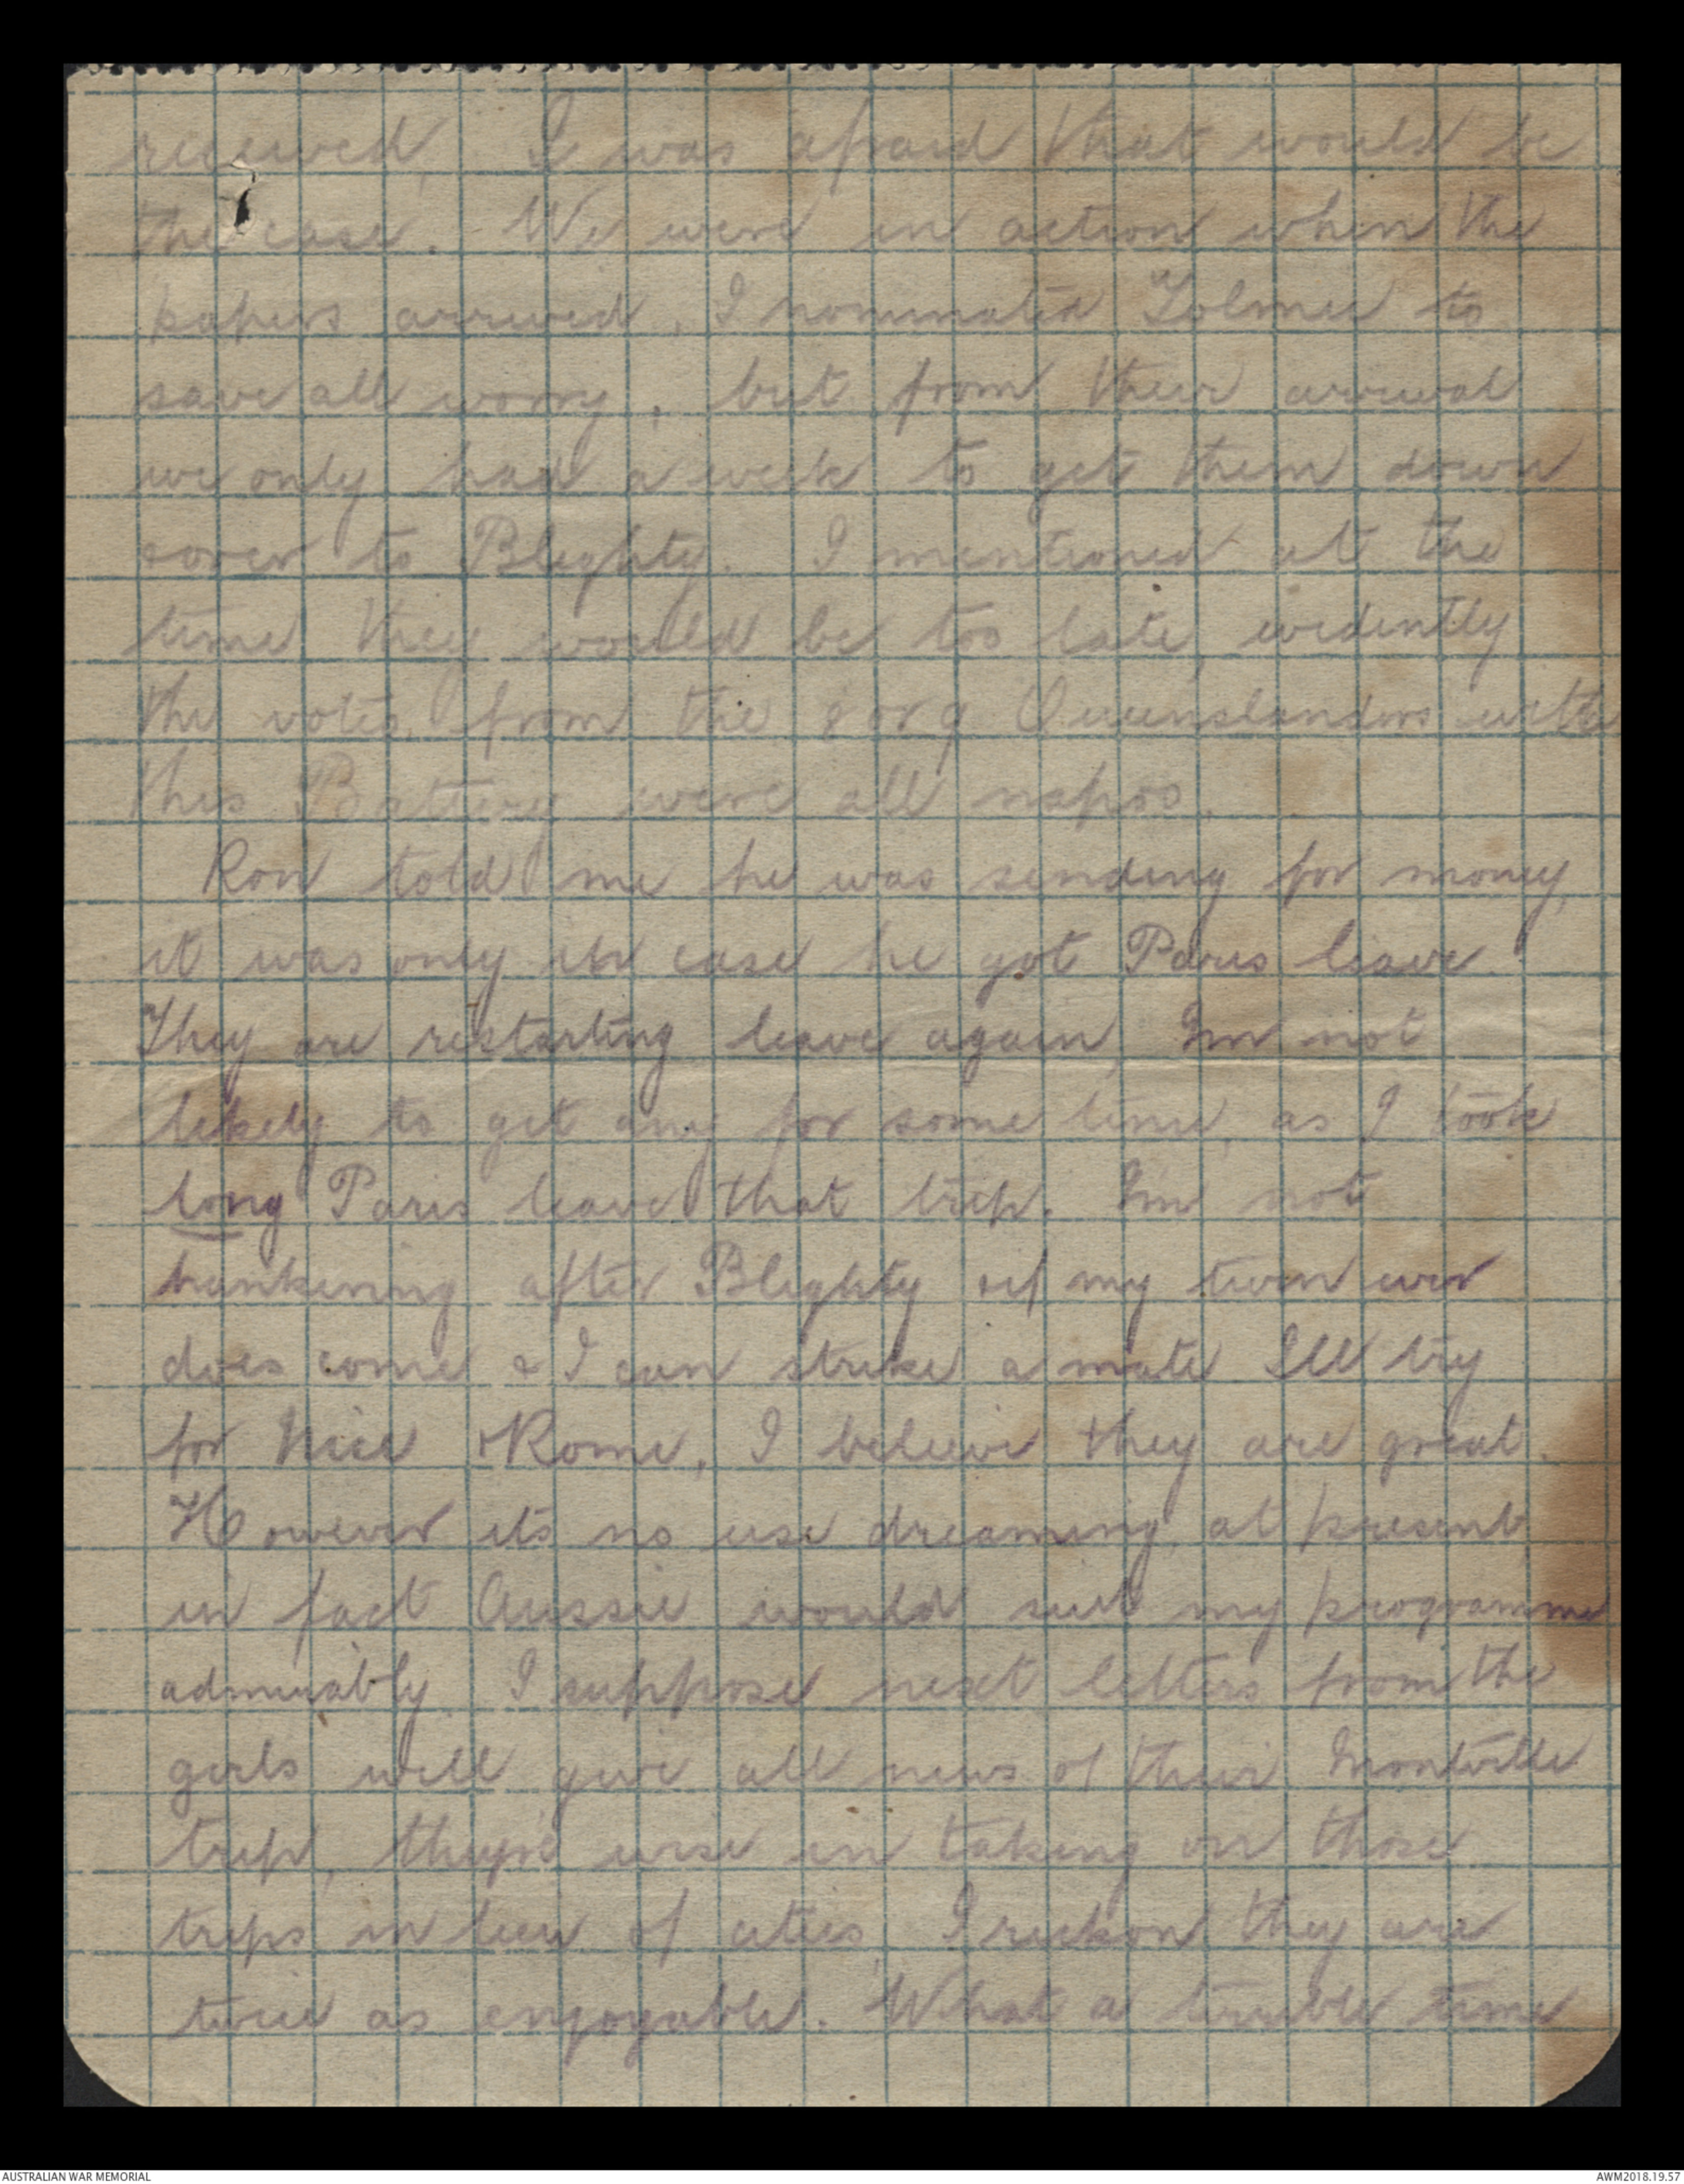 received, I was afraid that would be
the case. We were in action when the
papers arrived, I nominated Tolmie to
save all worry, but from their arrival
we only had a week to get them down
& over to Blighty. I mentioned at the
time they would be too late, evidently
the votes from the 8 or 9 Queenslanders with
this Battery were all napoo.
Ron told me he was sending for money,
it was only in case he got Paris leave.
They are restarting leave again, Im not
likely to get any for some time, as I took
long Paris leave that trip. Im not
hankering after Blighty & if my turn ever
does come & I can strike a mate Ill try
for Nice & Rome, I believe they are great.
However its no use dreaming at present,
in fact Aussie would suit my programme
admirably. I suppose next letters from the
girls will give all news of their Montville
trip, they're wise in taking on those
trips in lieu of cities, I reckon they are
twice as enjoyable. What a terrible time
AUSTRALIAN WAR MEMORIAL
AWM2018.19.57